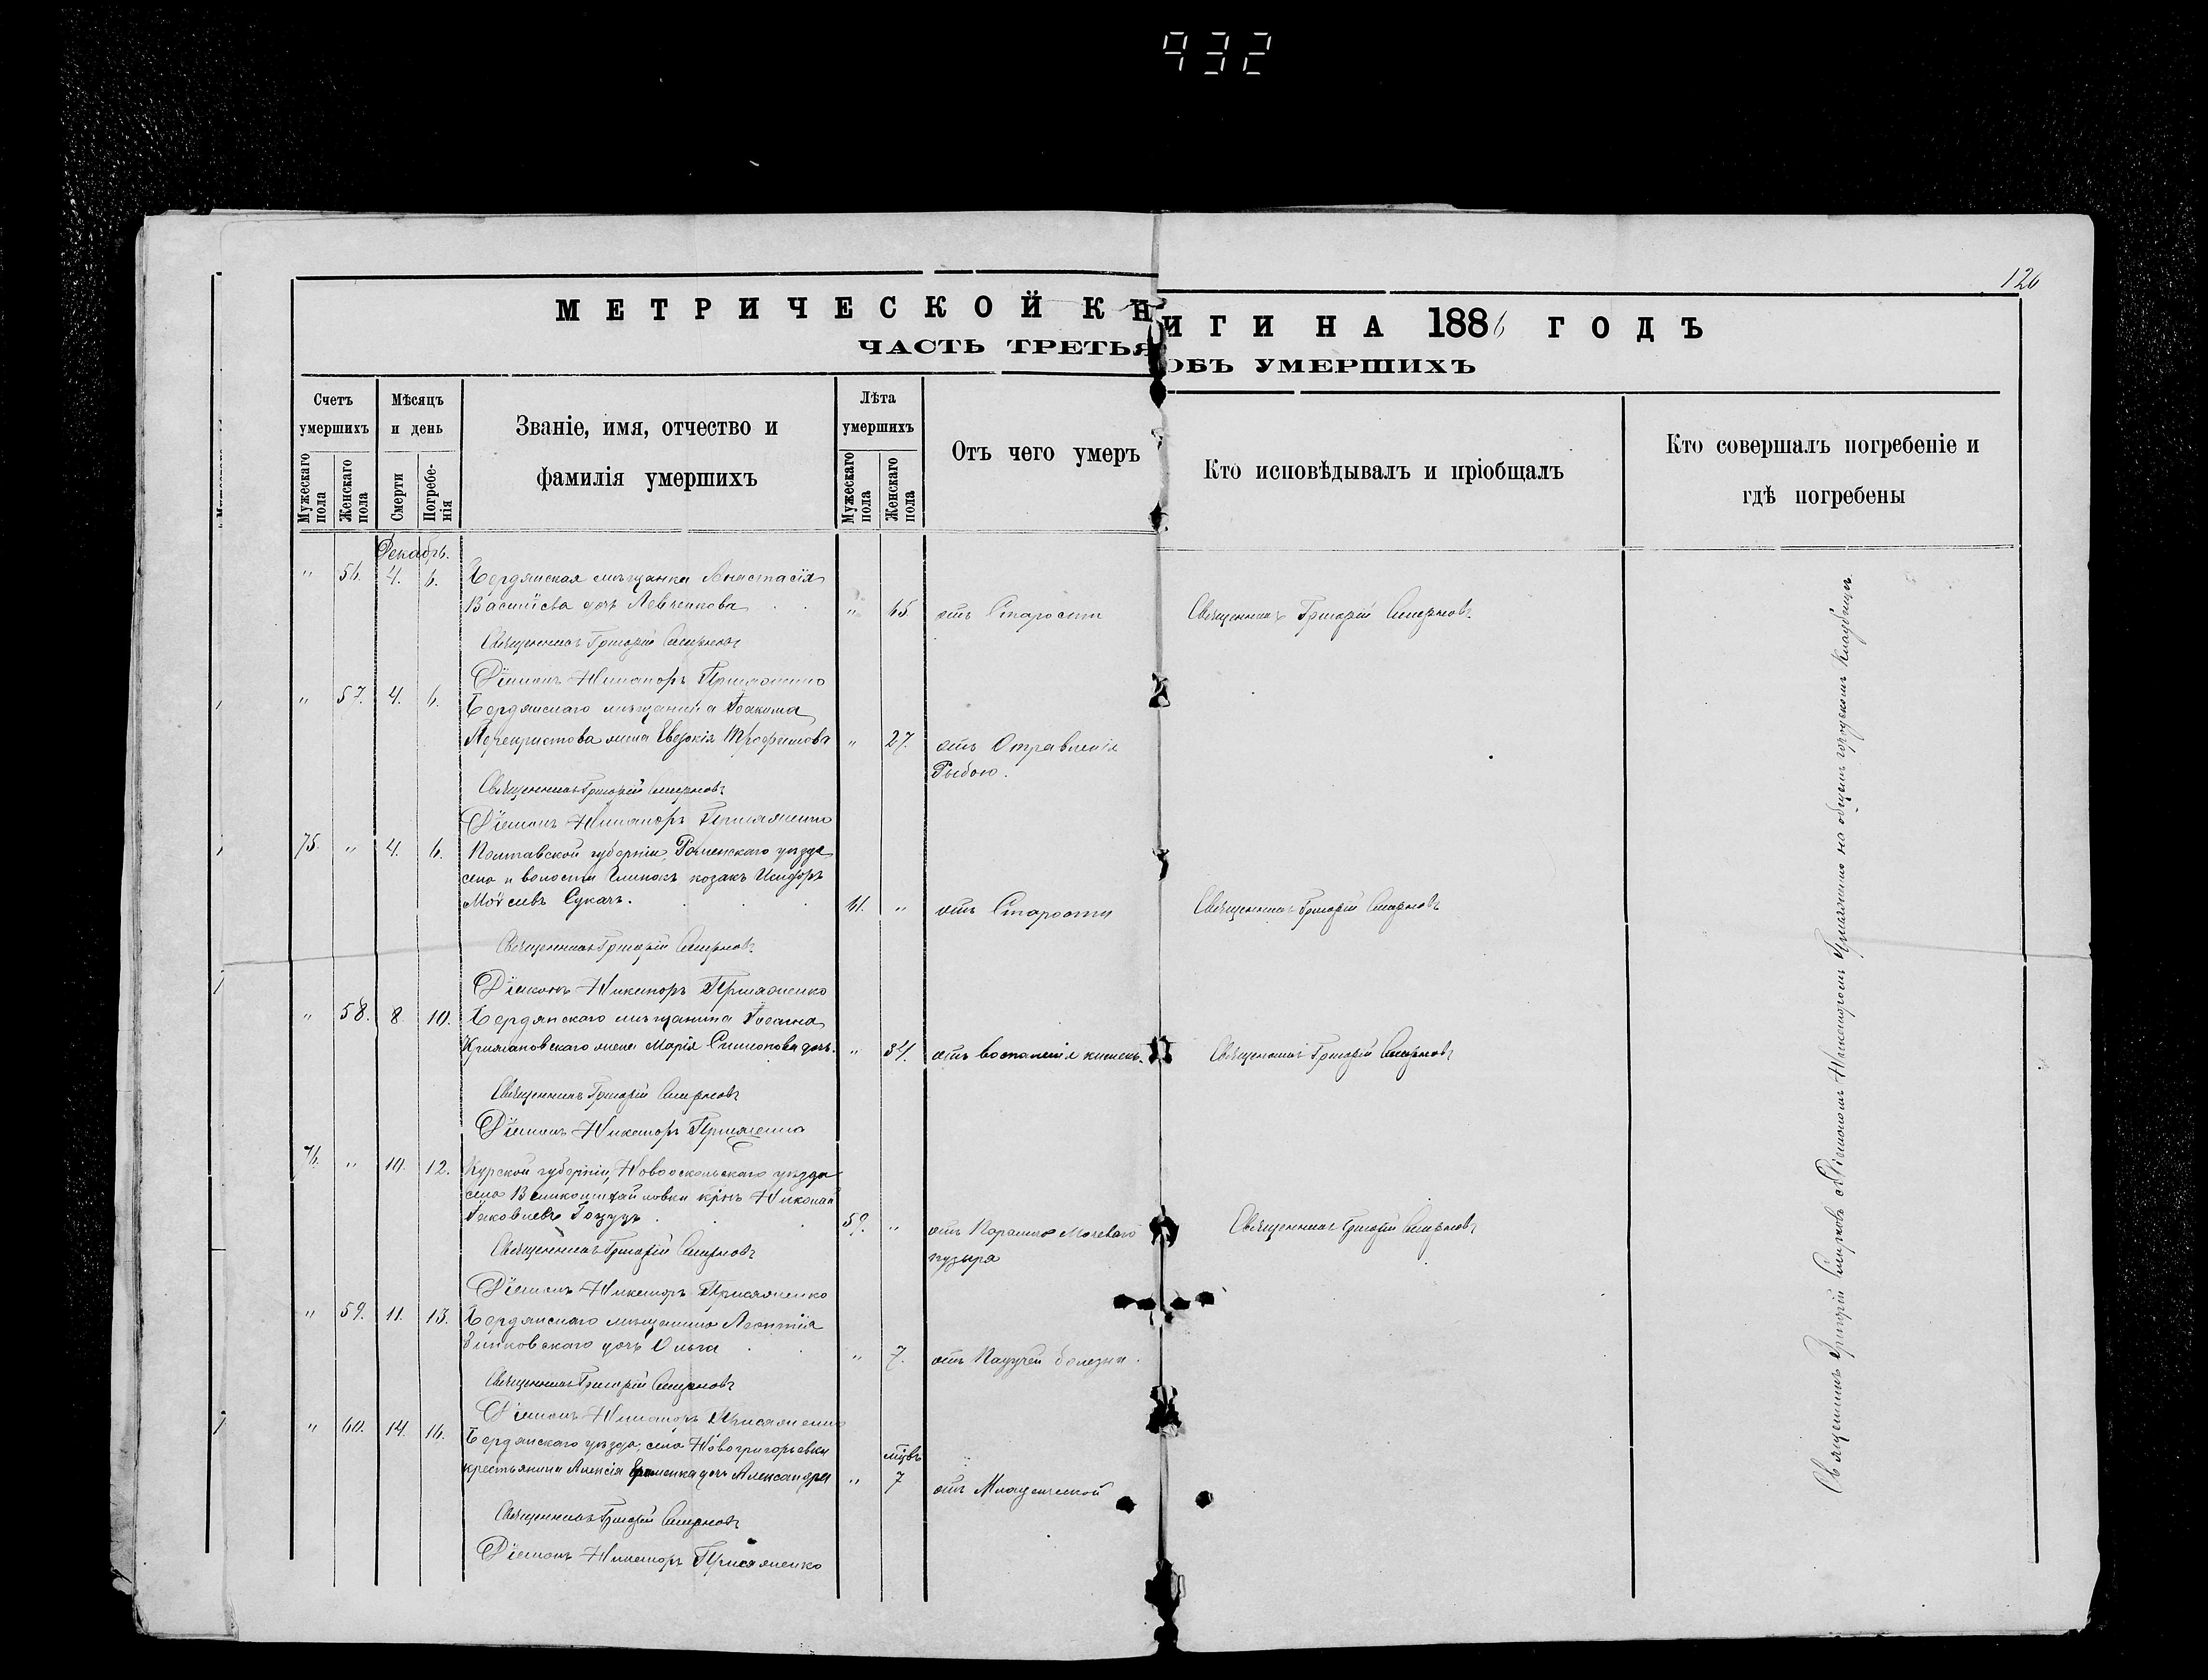 932
126
МЕТРИЧЕСКОЙ КНИГИ НА 1886 ГОДЪ
ЧАСТЬ ТРЕТЬЯ ОБЪ УМЕРШИХЪ
Счетъ умершихъ
Мужескаго пола
Женскаго пола
Мѣсяцъ и день
Смерти
Погребенія
Званіе, имя, отчество и
фамилія умершихъ
Лѣта умершихъ
Мужескаго пола
Женскаго пола
Отъ чего умеръ
Кто исповѣдывалъ и пріобщалъ
Кто совершалъ погребеніе и
гдѣ погребены
Декабрь.
" 56. 4. 6. Бердянская мѣщанка Анастасія
Васильева дочь Левченкова " 65 отъ Старости Священникъ Григорій Смирновъ.
Священникъ Григорій Смирновъ
Діаконъ Никаноръ Присяженко
" 57. 4. 6. Бердянскаго мѣщанина Іоакима
жена Евдокія Трофимова " 27. отъ Отравленія
Рыбою.
Священникъ Григорій Смирновъ
Діаконъ Никаноръ Присяженко
75. " 4. 6. Полтавской губерніи, Роменскаго уѣзда
села и волости Глинскъ козакъ Исидоръ
Моѵсеевъ Сукачъ. 61. " отъ Старости Священникъ Григорій Смирновъ
Священникъ Григорій Смирновъ.
Діаконъ Никаноръ Присяженко
" 58. 8. 10. Бердянскаго мѣщанина Іоанна
жена Марія Симеонова дочь. " 34. отъ воспаленія кишекъ. Священникъ Григорій Смирновъ
Священникъ Григорій Смирновъ
Діаконъ Никаноръ Присяженко
76. " 10. 12. Курской губерніи, Новооскольскаго уѣзда
села крнъ Николай
Іаковлевъ 59. " отъ Паралича Мочеваго Священникъ Григорій Смирновъ
пузыря
Священникъ Григорій Смирновъ
Діаконъ Никаноръ Присяженко
" 59. 11. 13. Бердянскаго мѣщанина Леонтія
дочь Ольга " 7. отъ Падучей болезни.
Священникъ Григорій Смирновъ
Діаконъ Никаноръ Присяженко
" 60. 14. 16. Бердянскаго уѣзда, села Новогригорьевки
мцвъ
крестьянина Алексія Еременка дочь Александра " 7 отъ Младенческой
Священникъ Григорій Смирновъ
Діаконъ Никаноръ Присяженко
Священникъ Григорій Смирновъ съ Діакономъ Никаноромъ Присяженко на общемъ городскомъ Кладбищѣ